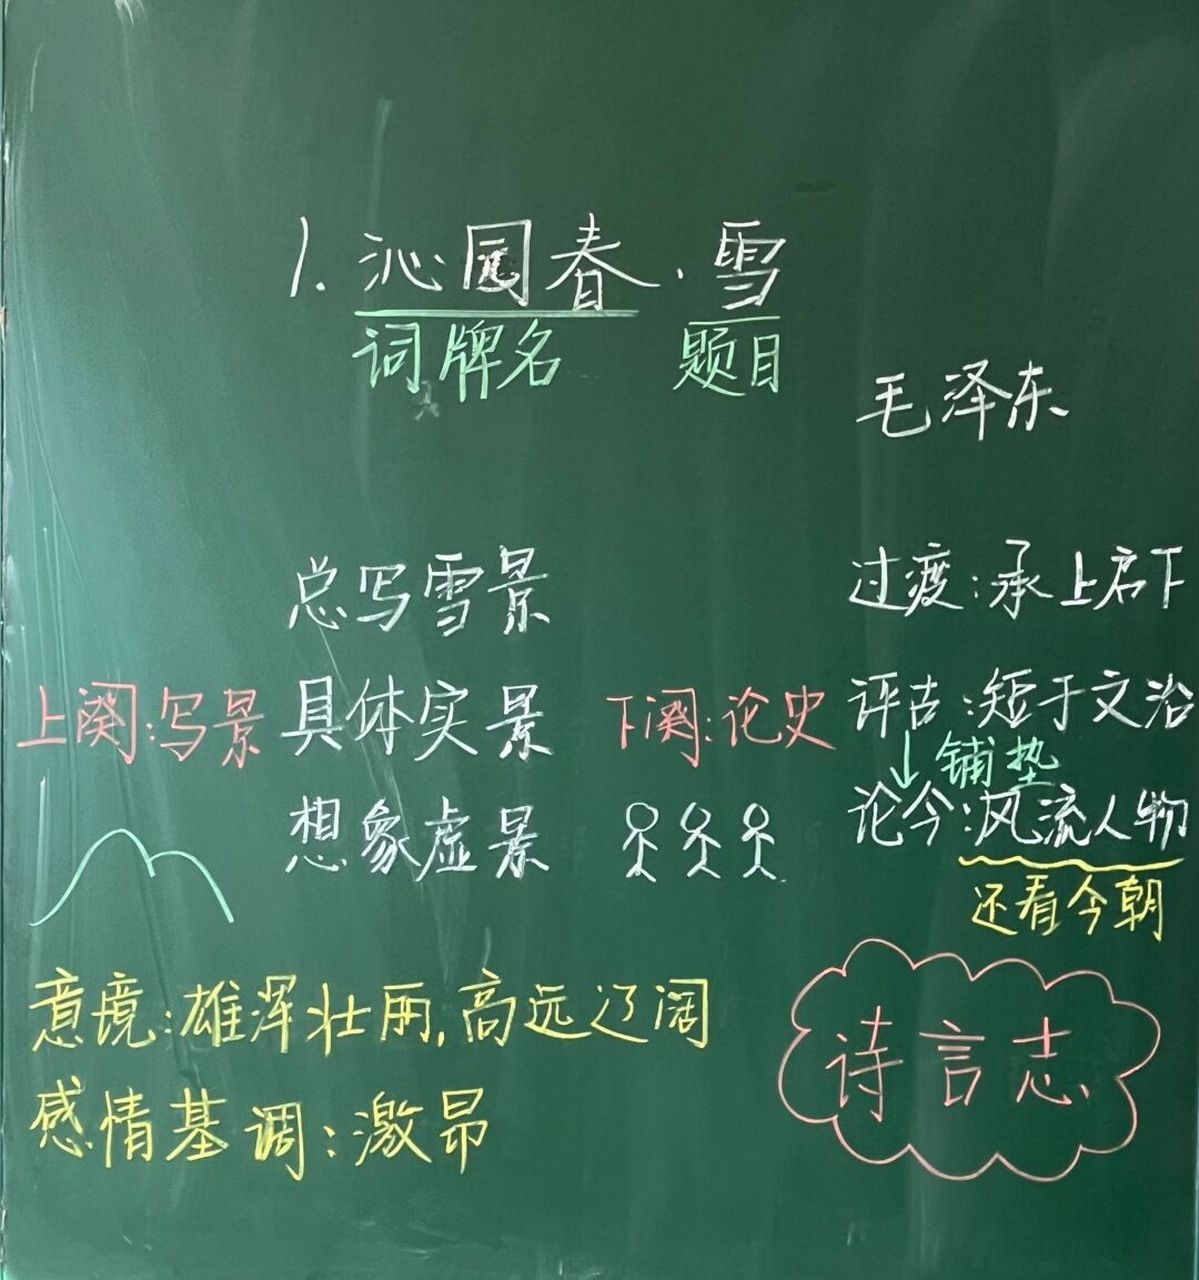 1.沁园春·雪
词牌名 题目
毛泽东
总写雪景
上阕:写景 具体实景
想象虚景
过渡:承上启下
下阕:论史 评古:短于文治
↓铺垫
论今:风流人物
还看今朝
意境:雄浑壮丽,高远辽阔
感情基调:激昂
诗言志